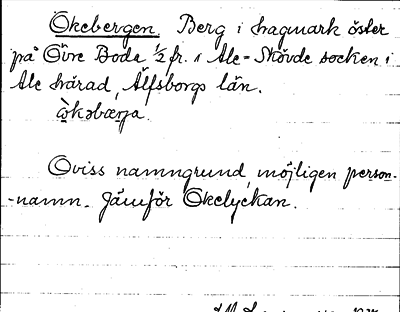 Økebergen. Berg i hagmark öster
på Övre Boda 1/2 fr. i Ale-Skövde socken i
Ale härad, Älfsborgs län.
Oviss namngrund, möjligen person-
-namn. Jämför Økelyckan.